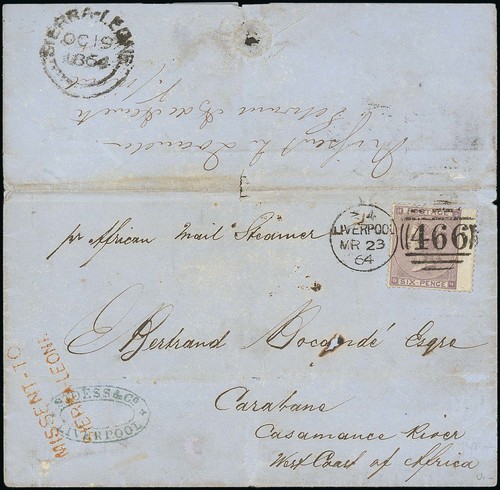 SIERRA-LEONE
OC 19
1864
Missent to
pr African Mail Steamer
LIVERPOOL
MR 23
64
466
POSTAGE
SIX-PENCE
E Bertrand Bocandé Esqre
Carabane
Casamance River
West Coast of Africa
MISSENT-TO
SIERRA-LEONE
& Co
LIVERPOOL